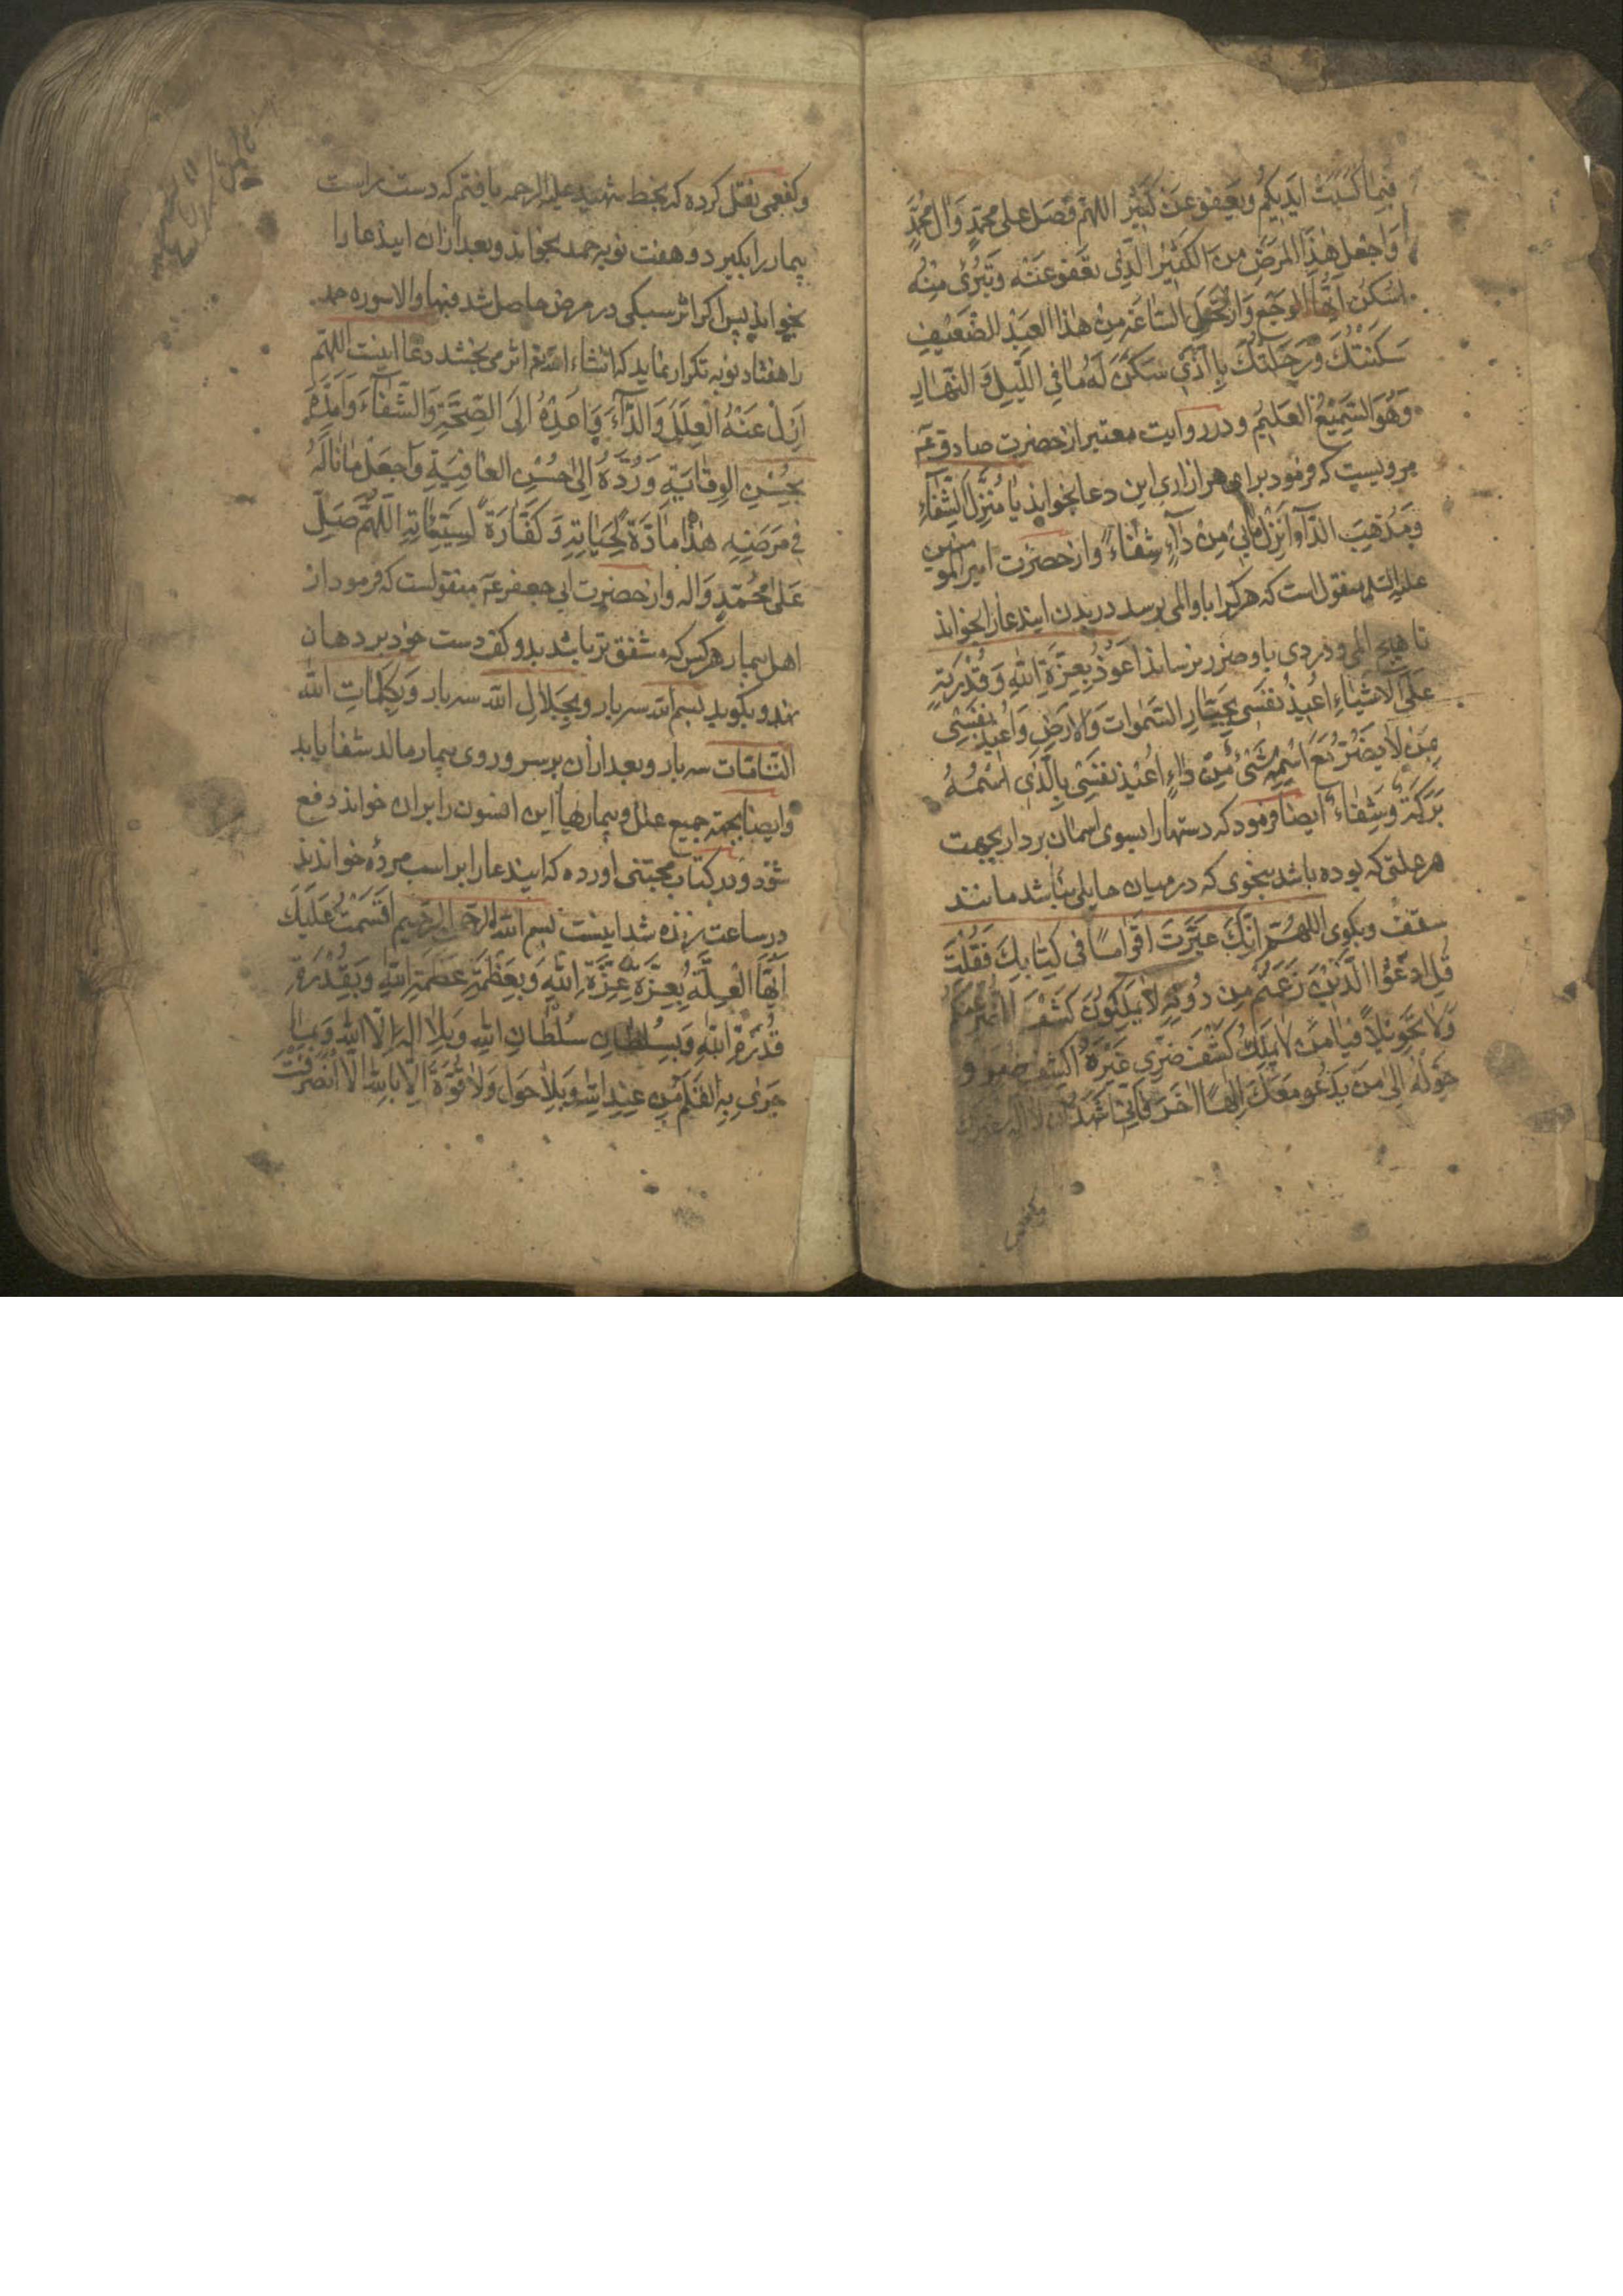 فبما كسبت ايديكم ويعفو عن كثير اللهم فصل على محمد وآل محمد
واجعل هذا المرض من الكثير الذي تعفو عنه وتبرئ منه
اسكن ايها الوجع وارتحل الساعة من هذا العبد الضعيف
سكنتك ورحلتك بالذي سكن له ما في الليل والنهار
وهو السميع العليم ودر روايت معتبر از حضرت صادق عه
مرويست كه فرمود براى هر ازارى اين دعا بخواند يا منزل الشفاء
ومذهب الداء انزل ما بي من داء شفاء واز حضرت امير المومنين
عليه السلم منقول است كه هر كرا باو المى برسد در بدن ايندعا را بخواند
تا هيچ المى ودردى باو ضرر نرساند اعوذ بعزة الله وقدرته
على الاشياء اعيذ نفسي بجبار السموات والارض واعيذ نفسي
بمن لا يضر مع اسمه شئ من داء اعيذ نفسي بالذي اسمه
بركة وشفاء ايضا فرمود كه دستها را بسوى اسمان بردار بجهت
هر علتى كه بوده باشد بنحوى كه در ميان حايلى نباشد مانند
سقف وبكوى اللهم انك عيرت اقواما في كتابك فقلت
قل ادعوا الذين زعمتم من دونه لا يملكون كشف الضر عنكم
ولا تحويلا فيا من لا يملك كشف ضري غيره اكشف ضره و
حوله الى من يدعو معك الها اخر فاني اشهد ان لا اله غيرك
وكفعمى نقل كرده كه بخط شهيد عليه الرحمه يافتم كه دست راست
بيمار را بكيرد وهفت نوبه حمد بخواند وبعد ازان ايندعا را
بخواند پس اكر اثر سبكى در مرض حاصل شد فبها والا سوره حمد
را هفتاد نوبه تكرار نمايد كه انشاء الله تع اثر مى بخشد دعا اينست اللهم
ازل عنه العلل والداء واعده الى الصحة والشفاء وامده
بحسن الوقاية ورده الى حسن العافية واجعل ما ناله
في مرضه هذا مادة لحياته وكفارة لسيئاته اللهم صل
على محمد واله واز حضرت ابي جعفر عه منقولست كه فرمود از
اهل بيمار هركس كه مشفق تر باشد بدو كف دست خود بر دهان
نهد وبكويد بسم الله سه بار وبجلال الله سه بار وبكلمات الله
التامات سه بار وبعد ازان بر سر وروى بيمار مالد شفا يابد
وايضا بجهة جميع علل وبيماريها اين افسون را بران خواند دفع
شود ودر كتاب مجتنى اورده كه ايندعا را بر اسب مرده خواندند
در ساعت زنده شد اينست بسم الله الرحمن الرحيم اقسمت عليك
ايها العلة بعزة عزة الله وبعظمة عظمة الله وبقدرة
قدرة الله وبسلطان سلطان الله وبلا اله الا الله وبما
جرى به القلم من عند الله وبلا حول ولا قوة الا بالله الا انصرفت